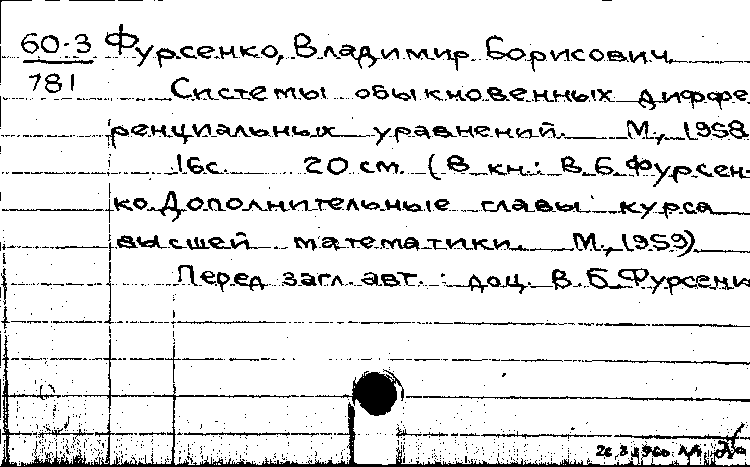 60-3 Фурсенко, Владимир Борисович.
781 Системы обыкновенных диффе
ренциальных уравнений. М., 1958
16с. 20 см. (В кн.: В.Б.Фурсен-
ко. Дополнительные главы курса
высшей математики. М., 1959)
Перед загл. авт.: доц. В.Б.Фурсенк